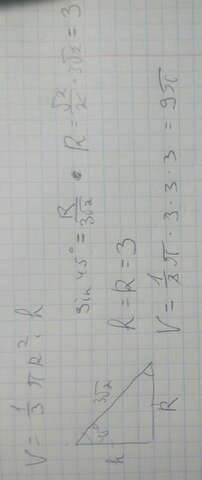 V = 1/3 π R². h
sin 45° = R/3√2
R = √2/2 · 3√2 = 3
h = R = 3
V = 1/3 π · 3 · 3 · 3 = 9π
3√2
45°
h
R